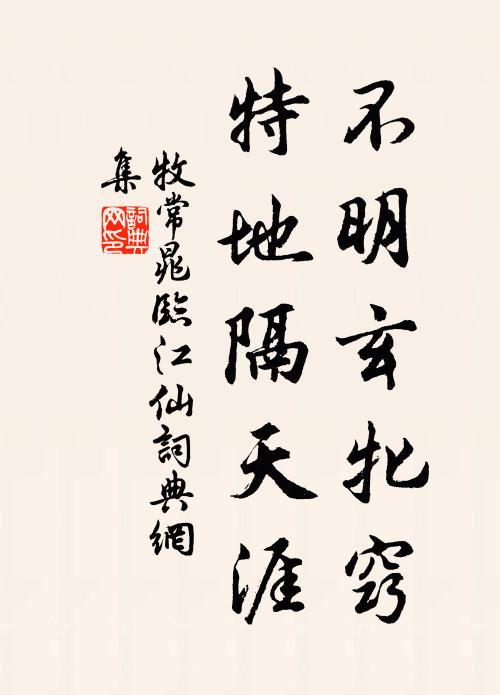 不明玄牝窍
特地隔天涯
牧常晁臨江仙詞典網
集
詞典网印